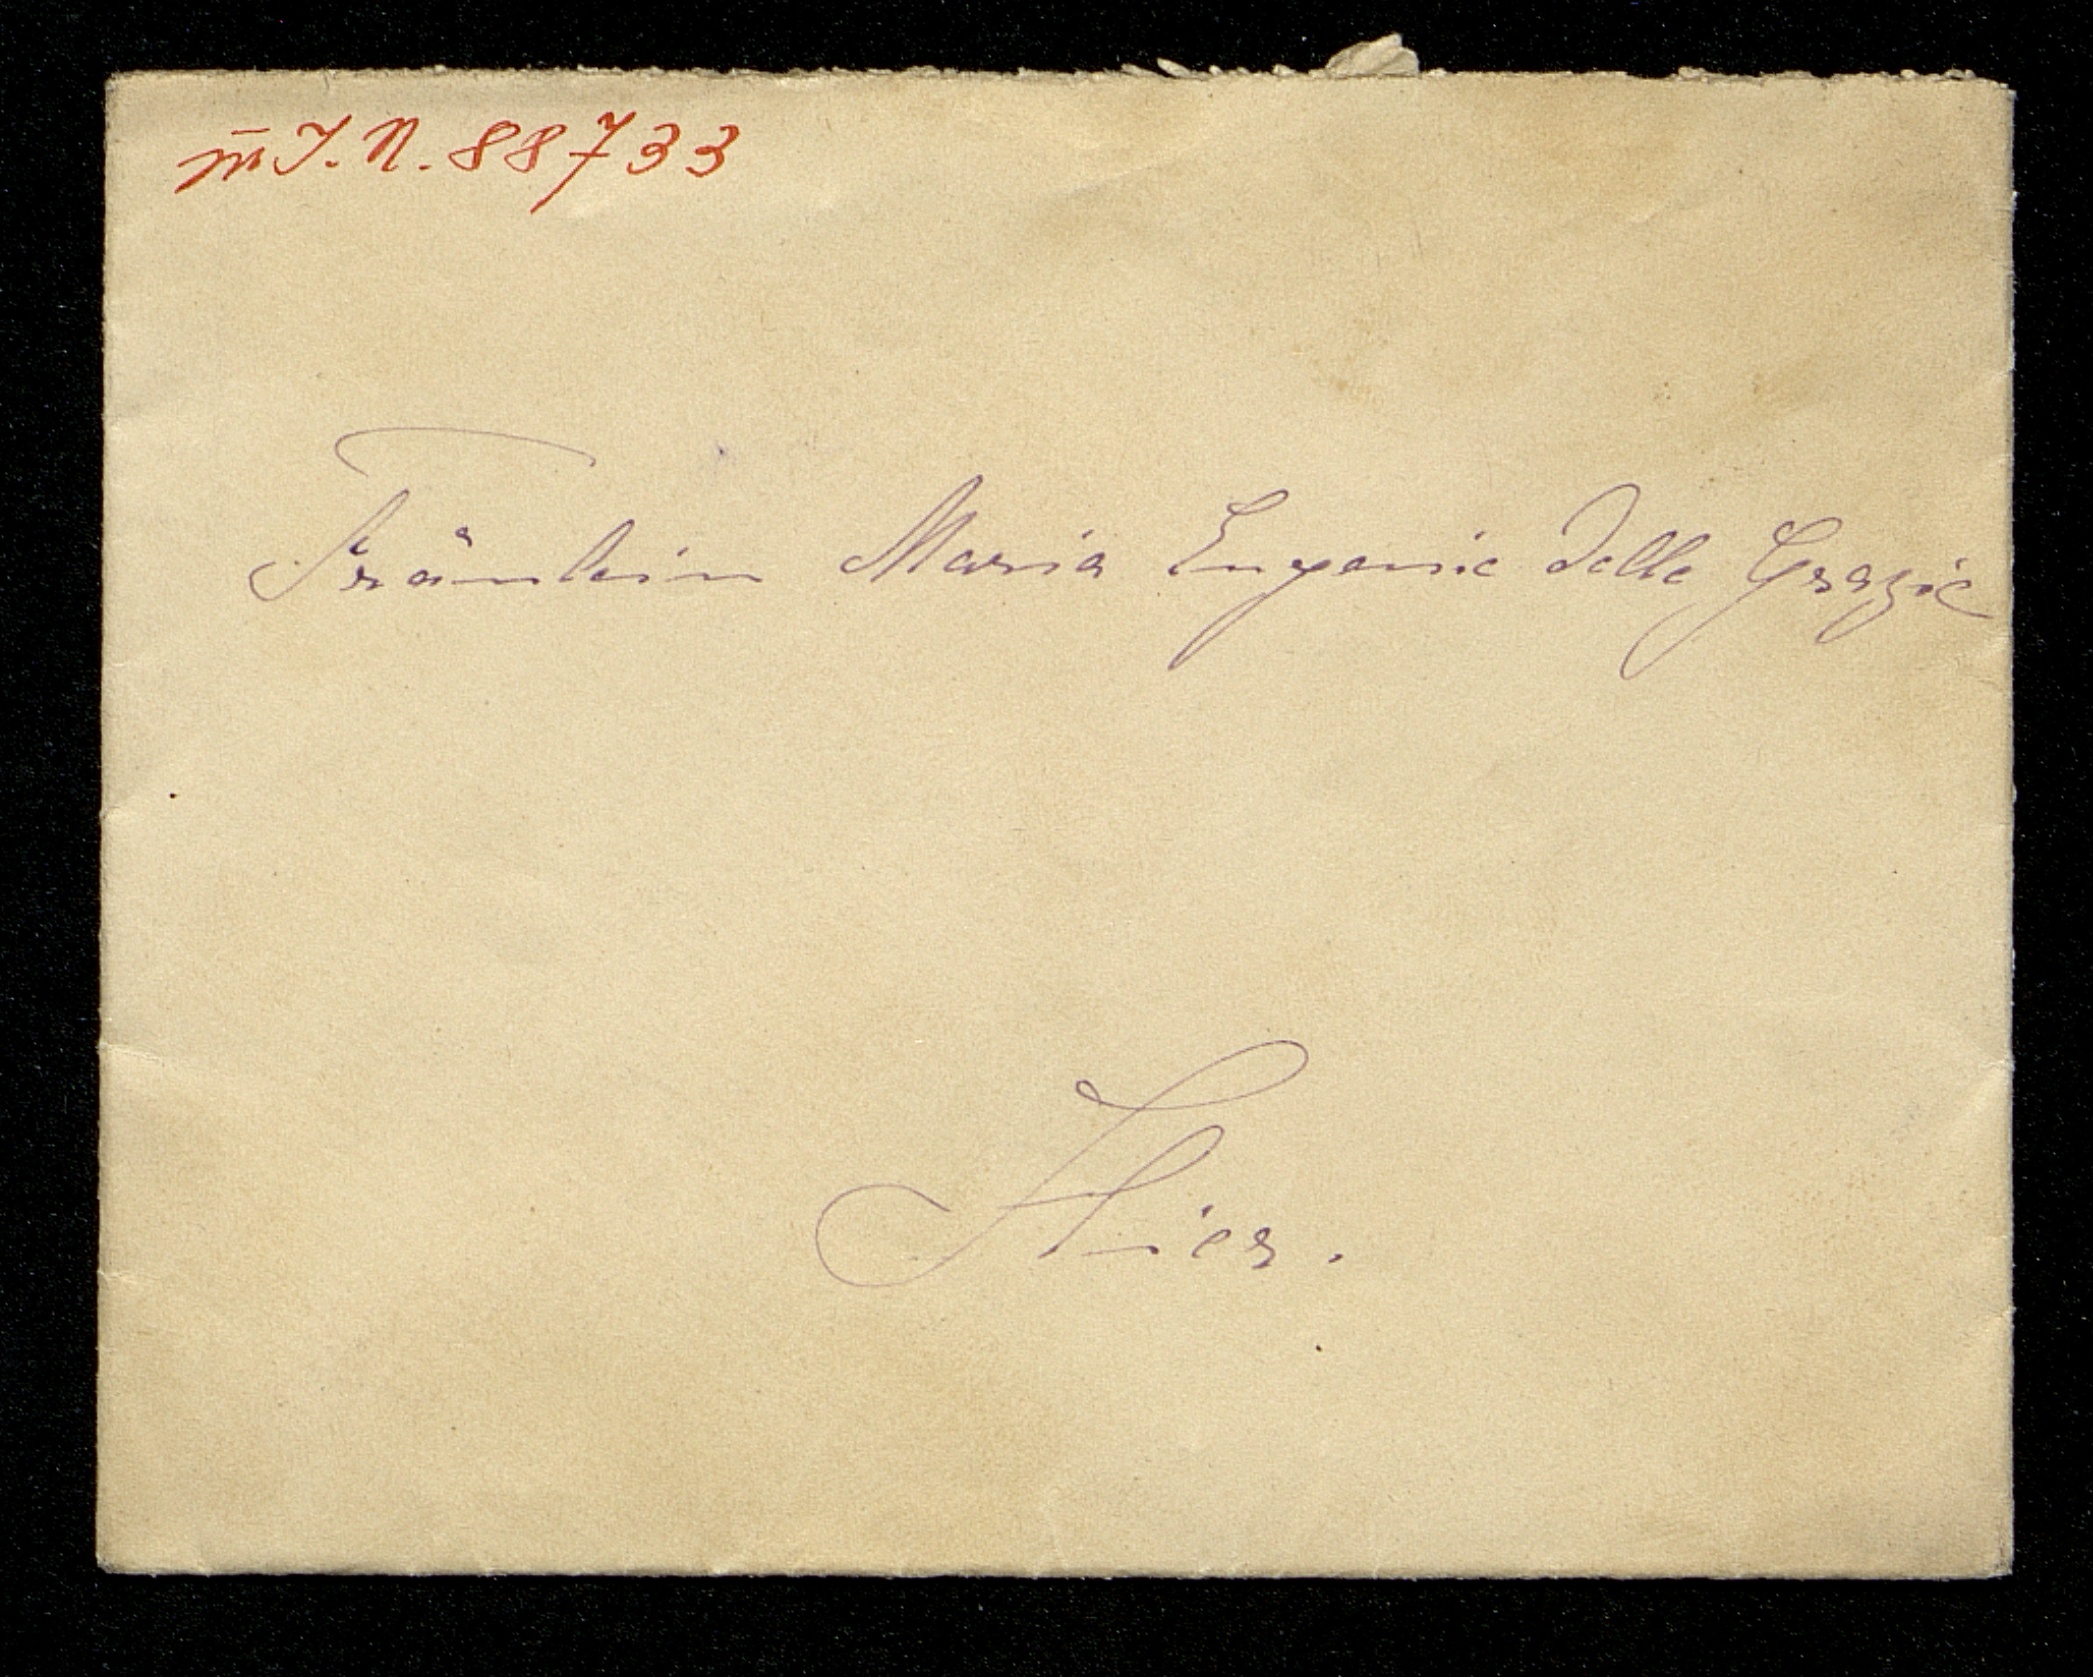 m̄ I.N. 88733
Fräulein Maria Eugenie delle Grazie
Hier.